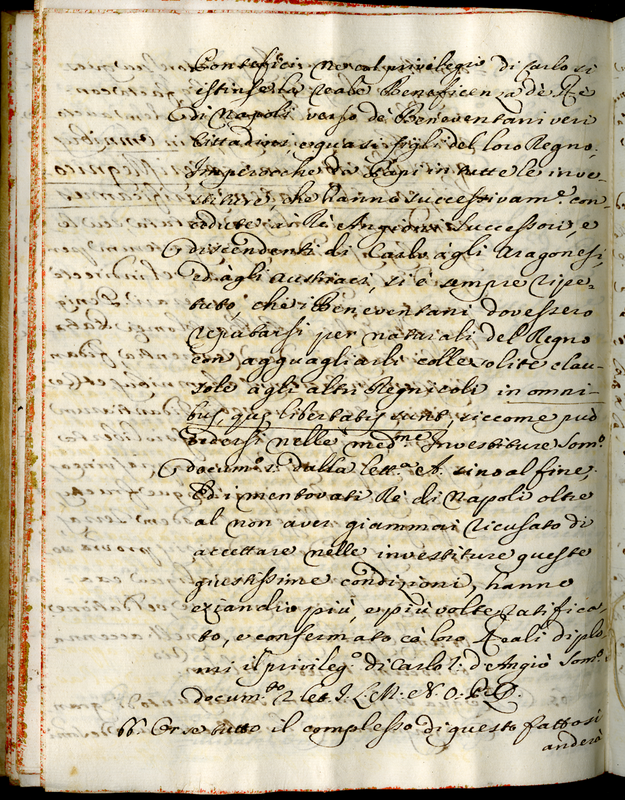 Pontefici; ne col privilegio di Carlo si
istinse la reale Beneficenza de Re
di Napoli verso de Beneventani veri
Cittadini, e quasi figli del loro Regno.
Imperocche da Papi in tutte le inve-
stiture, che hanno successivam.e con-
cedute a i Rè Angioini successori, e
discendenti di Carlo, agli Aragonesi,
ed agli Austriaci, si è sempre ripe-
tuto, che i Beneventani dovessero
reputarsi per naturali del Regno
con agguagliarli colle solite clau-
sole agli altri Regnicoli in omni-
bus, quę libertatis sunt, siccome può
vedersi nelle med.me Investiture Som.o
docum: 2: dalla lett.a A. sino al fine;
Ed i mentovati Rè di Napoli oltre
al non aver giammai ricusato di
accettare nelle investiture queste
giustissime condizioni, hanno
eziandio più, e più volte ratifica-
to, e confermato cò loro Reali diplo-
mi il privileg.o di Carlo I: d'Angiò Som.o
docum.to 2 let. I. L. M. N. O. P. e Q.
66. Or se tutto il complesso di questo fatto si
anderà